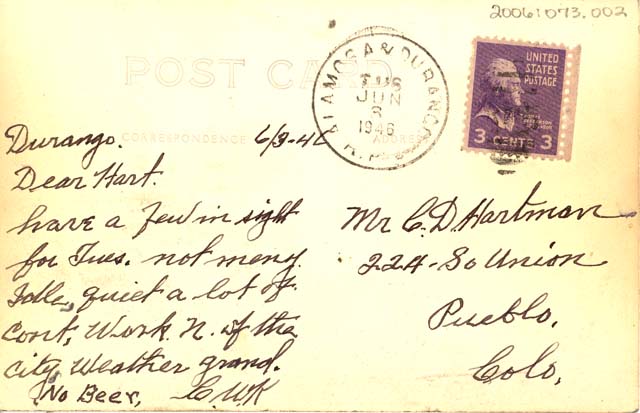 20061073.002
POST CARD
CORRESPONDENCE
ADDRESS
ALAMOSA & DURANGO
JUN
1946
R.P.O.
UNITED
STATES
POSTAGE
3 CENTS 3
Durango. 6/3-46
Dear Hart.
have a few in sight
for Tues. not meny
Idle, quiet a lot of
cont, Work N. of the
city, Weather grand.
No Beer, C.W.K
Mr C. D Hartman
224-So Union
Pueblo,
Colo,